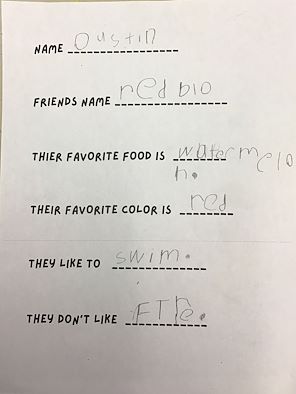 NAME Oustin
FRIENDS NAME red bio
THIER FAVORITE FOOD IS watermelo
n.
THEIR FAVORITE COLOR IS red
THEY LIKE TO swim.
THEY DON'T LIKE